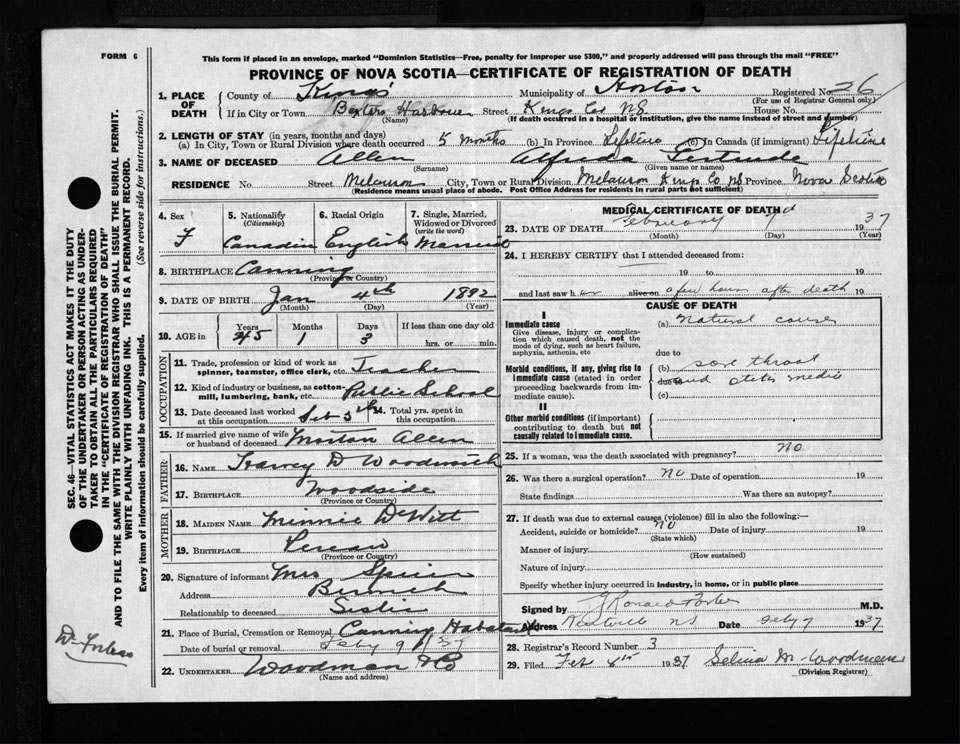 FORM 6
This form if placed in an envelope, marked "Dominion Statistics—Free, penalty for improper use $300," and properly addressed will pass through the mail "FREE"
PROVINCE OF NOVA SCOTIA—CERTIFICATE OF REGISTRATION OF DEATH
1. PLACE OF DEATH County of Kings Municipality of Horton Registered No. 26
(For use of Registrar General only)
If in City or Town Baxters Harbour Street Kings Co. N.S. House No.
(Name) (If death occurred in a hospital or institution, give the name instead of street and number)
2. LENGTH OF STAY (in years, months and days)
(a) In City, Town or Rural Division where death occurred 5 months (b) In Province Lifetime (c) In Canada (if immigrant) Lifetime
3. NAME OF DECEASED Allen Alfreda Gertrude
(Surname) (Given name or names)
RESIDENCE No. Street Melanson City, Town or Rural Division Melanson Kings Co NS Province Nova Scotia
(Residence means usual place of abode. Post Office Address for residents in rural parts not sufficient)
4. Sex 5. Nationality (Citizenship) 6. Racial Origin 7. Single, Married, Widowed or Divorced (write the word)
F Canadian English Married
8. BIRTHPLACE Canning
(Province or Country)
9. DATE OF BIRTH Jan 4th 1892
(Month) (Day) (Year)
10. AGE in Years Months Days If less than one day old
45 1 3 hrs. or min.
OCCUPATION
11. Trade, profession or kind of work as spinner, teamster, office clerk, etc. Teacher
12. Kind of industry or business, as cotton-mill, lumbering, bank, etc. Public School
13. Date deceased last worked at this occupation Feb 5th 14. Total yrs. spent in this occupation
15. If married give name of wife or husband of deceased Morton Allen
FATHER
16. NAME Harvey D Woodworth
17. BIRTHPLACE Woodside
(Province or Country)
MOTHER
18. MAIDEN NAME Minnie DeWitt
19. BIRTHPLACE
(Province or Country)
20. Signature of informant Mrs
Address
Relationship to deceased Sister
21. Place of Burial, Cremation or Removal Canning
Date of burial or removal Feby 9 / 37
22. UNDERTAKER Woodman & Co
(Name and address)
MEDICAL CERTIFICATE OF DEATH
23. DATE OF DEATH February 7 1937
(Month) (Day) (Year)
24. I HEREBY CERTIFY that I attended deceased from:
19 to 19
and last saw her alive on a few hours after death 19
CAUSE OF DEATH
I
Immediate cause (a) natural causes
Give disease, injury or complication which caused death, not the mode of dying, such as heart failure, asphyxia, asthenia, etc
due to
Morbid conditions, if any, giving rise to immediate cause (stated in order proceeding backwards from immediate cause). (b) sore throat
due to and otitis media
(c)
II
Other morbid conditions (if important) contributing to death but not causally related to immediate cause.
25. If a woman, was the death associated with pregnancy? NO
26. Was there a surgical operation? NO Date of operation 19
State findings Was there an autopsy?
27. If death was due to external causes (violence) fill in also the following:—
Accident, suicide or homicide? NO Date of injury 19
(State which)
Manner of injury
(How sustained)
Nature of injury
Specify whether injury occurred in industry, in home, or in public place
Signed by M.D.
Address NS Date Feby 7 1937
28. Registrar's Record Number 3
29. Filed Feb 8th 1937 Selina M. Woodman
(Division Registrar)
SEC. 46—VITAL STATISTICS ACT MAKES IT THE DUTY
OF THE UNDERTAKER OR PERSON ACTING AS UNDER-
TAKER TO OBTAIN ALL THE PARTICULARS REQUIRED
IN THE "CERTIFICATE OF REGISTRATION OF DEATH"
AND TO FILE THE SAME WITH THE DIVISION REGISTRAR WHO SHALL ISSUE THE BURIAL PERMIT.
WRITE PLAINLY WITH UNFADING INK. THIS IS A PERMANENT RECORD.
Every item of information should be carefully supplied. (See reverse side for instructions.)